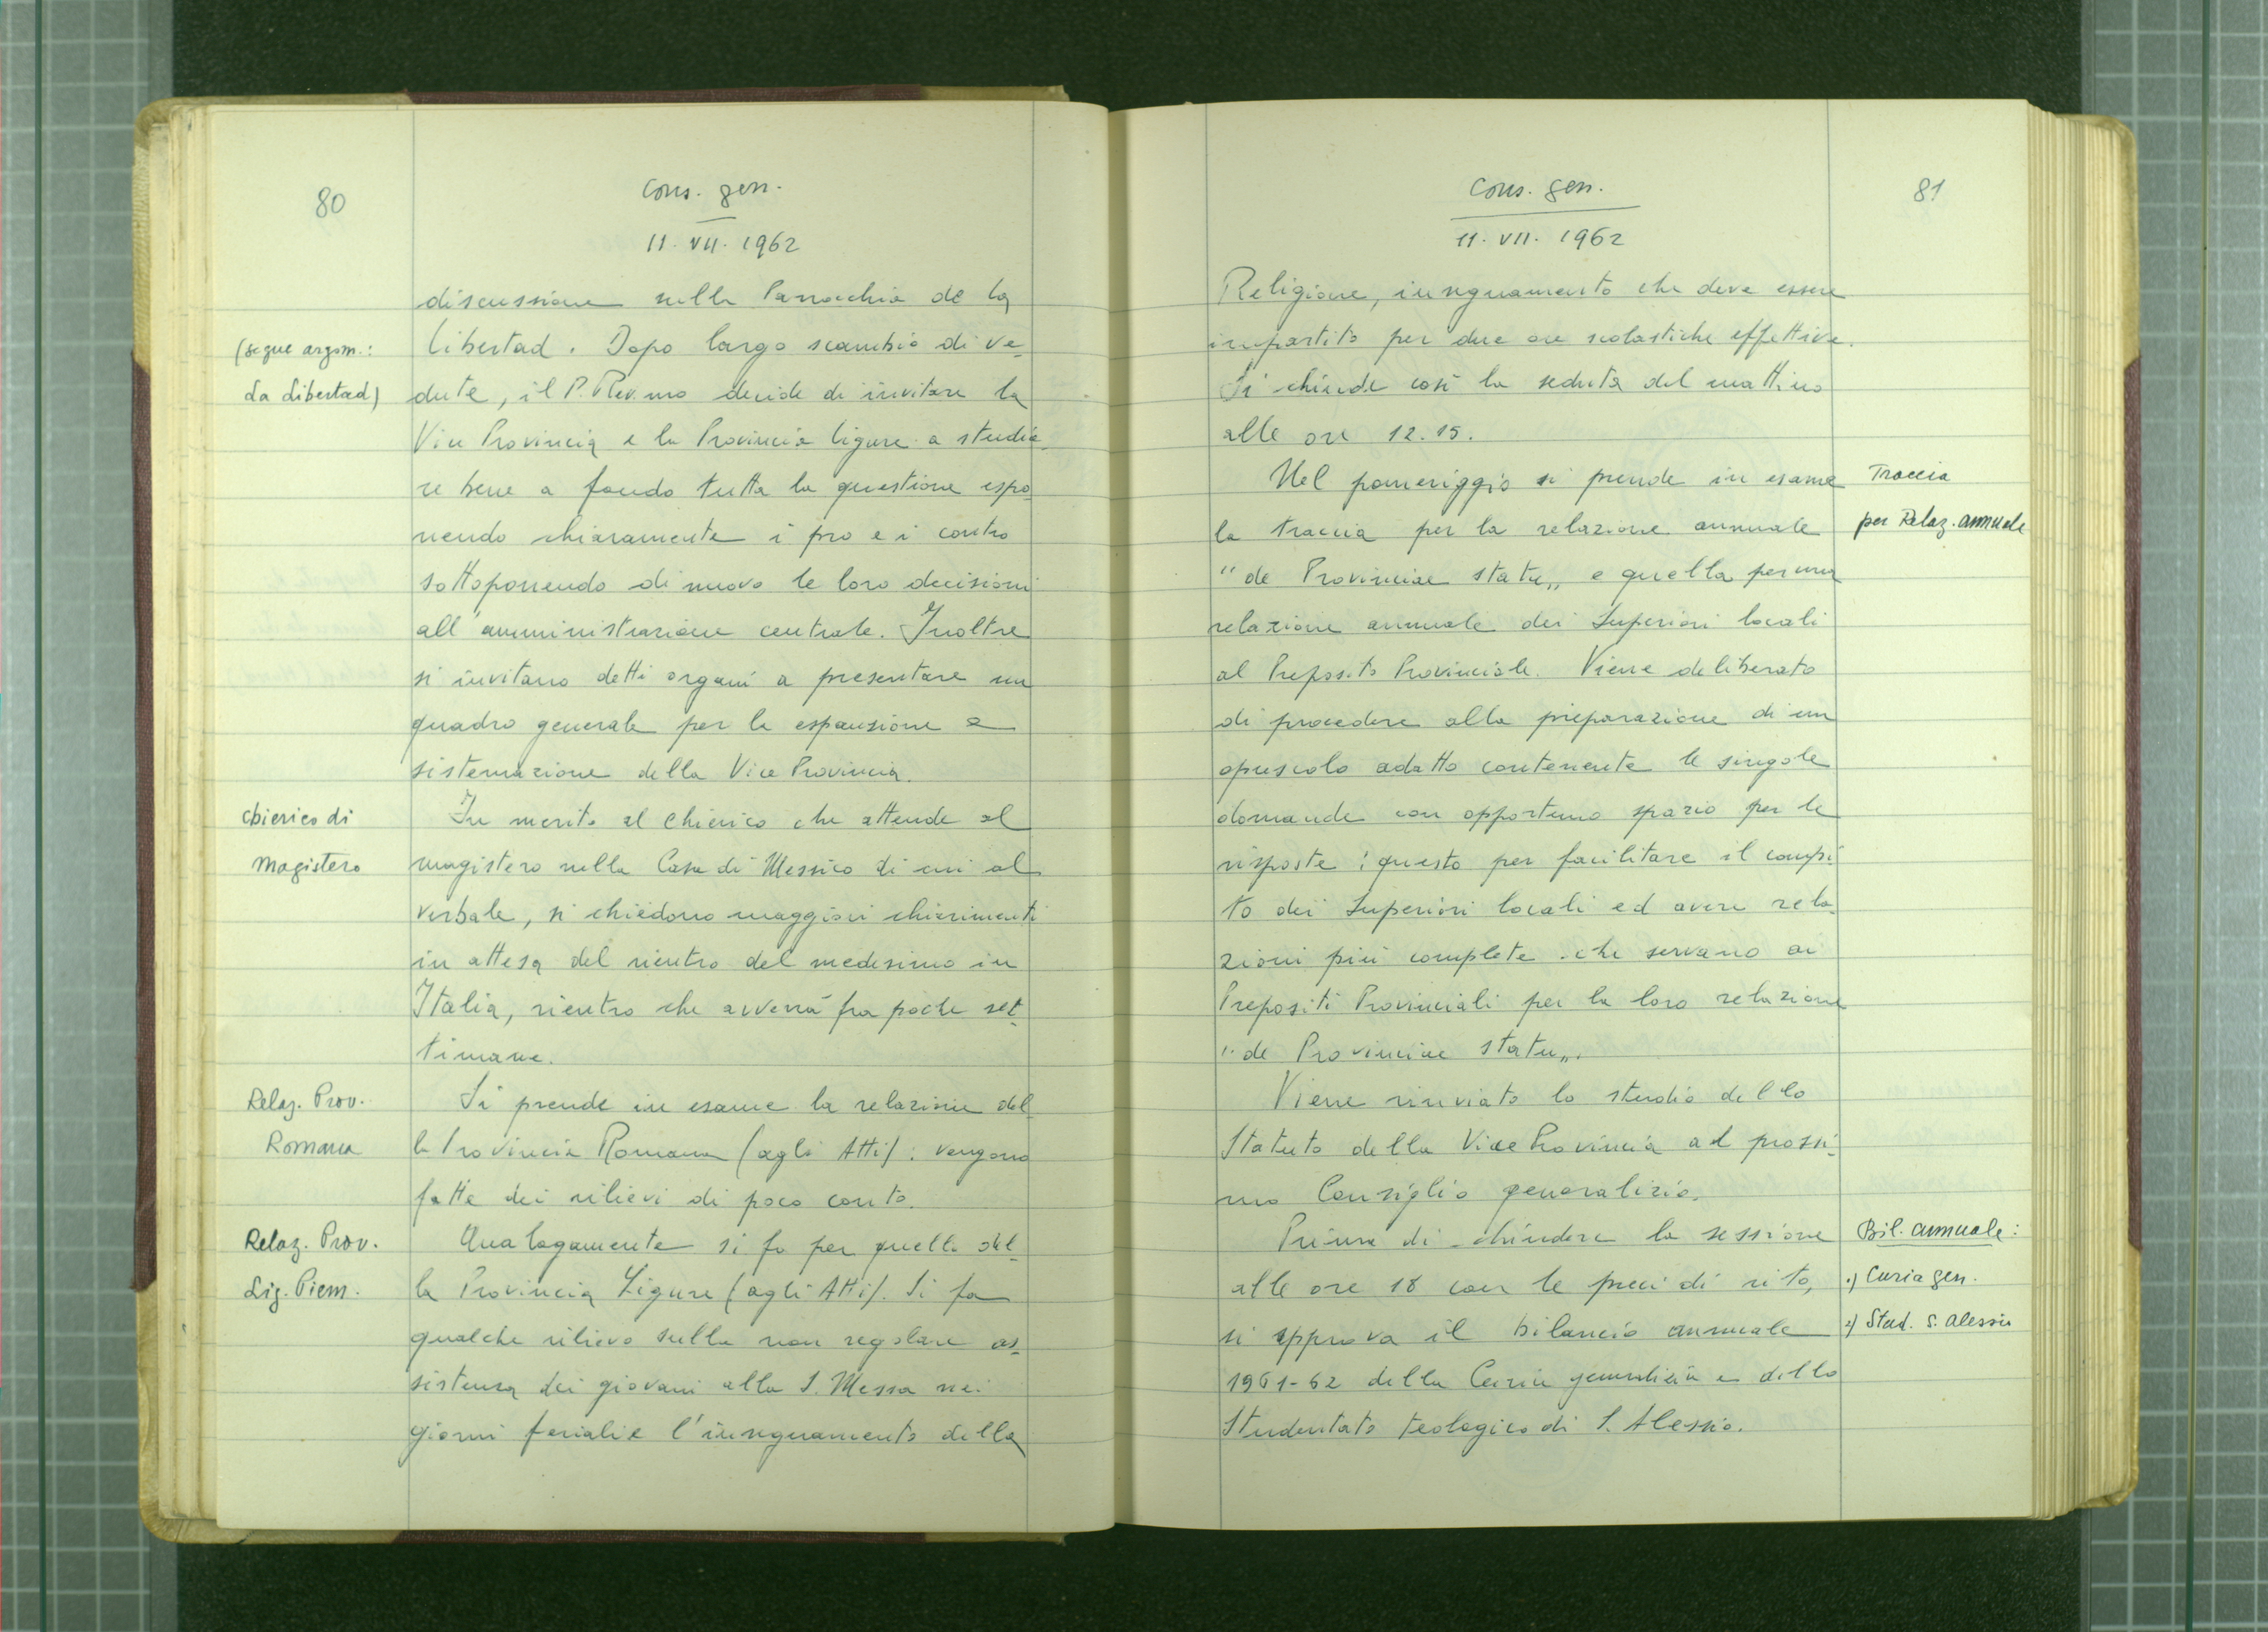 80
Cons. gen.
11. VII. 1962
discussione sulla Parrocchia de la
(segue argom.:
Libertad. Dopo largo scambio di ve-
La Libertad)
dute, il P. Rev.mo decide di invitare la
Vice Provincia e la Provincia ligure a studia-
re bene a fondo tutta la questione espo
nendo chiaramente i pro e i contro
sottoponendo di nuovo le loro decisioni
all'amministrazione centrale. Inoltre
si invitano detti organi a presentare un
quadro generale per la espansione e
sistemazione della Vice Provincia.
chierico di
In merito al Chierico che attende al
magistero
magistero nella Casa di Messico di cui al
verbale, si chiedono maggiori chiarimenti
in attesa del rientro del medesimo in
Italia, rientro che avverrà fra poche set-
timane.
Relaz. Prov.
Si prende in esame la relazione del-
Romana
la Provincia Romana (agli Atti): vengono
fatte dei rilievi di poco conto.
Relaz. Prov.
Analogamente si fa per quella del-
Lig. Piem.
la Provincia Ligure (agli Atti). Si fa
qualche rilievo sulla non regolare as-
sistenza dei giovani alla S. Messa nei
giorni feriali e l'insegnamento della
81
Cons. gen.
11. VII. 1962
Religione, insegnamento che deve essere
impartito per due ore scolastiche effettive.
Si chiude così la seduta del mattino
alle ore 12.15.
Nel pomeriggio si prende in esame
Traccia
la traccia per la relazione annuale
per Relaz. annuale
"de Provinciae statu„ e quella per una
relazione annuale dei Superiori locali
al Preposito Provinciale. Viene deliberato
di procedere alla preparazione di un
opuscolo adatto contenente le singole
domande con opportuno spazio per le
risposte: questo per facilitare il compi-
to dei Superiori locali ed avere rela-
zioni più complete che servano ai
Prepositi Provinciali per la loro relazione
"de Provinciae statu„.
Viene rinviato lo studio dello
Statuto della Vice Provincia al prossi-
mo Consiglio generalizio.
Prima di chiudere la sessione
Bil. annuale:
alle ore 18 con le preci di rito,
1) Curia gen.
si approva il bilancio annuale
2) Stud. S. Alessio
1961-62 della Curia generalizia e dello
Studentato teologico di S. Alessio.